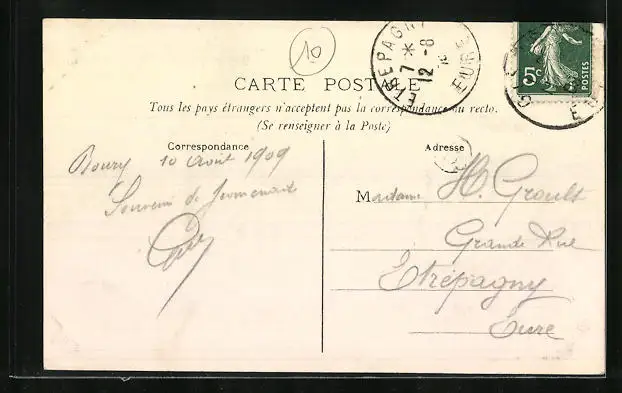 10
CARTE POSTALE
Tous les pays étrangers n'acceptent pas la correspondance au recto.
(Se renseigner à la Poste)
ETREPAGNY
7 * 12 -8
EURE
5c
POSTES
Correspondance
Boury 10 Août 1909
Souvenir de promenade
Adresse
Madame H. Groult
Grande Rue
Etrépagny
Eure